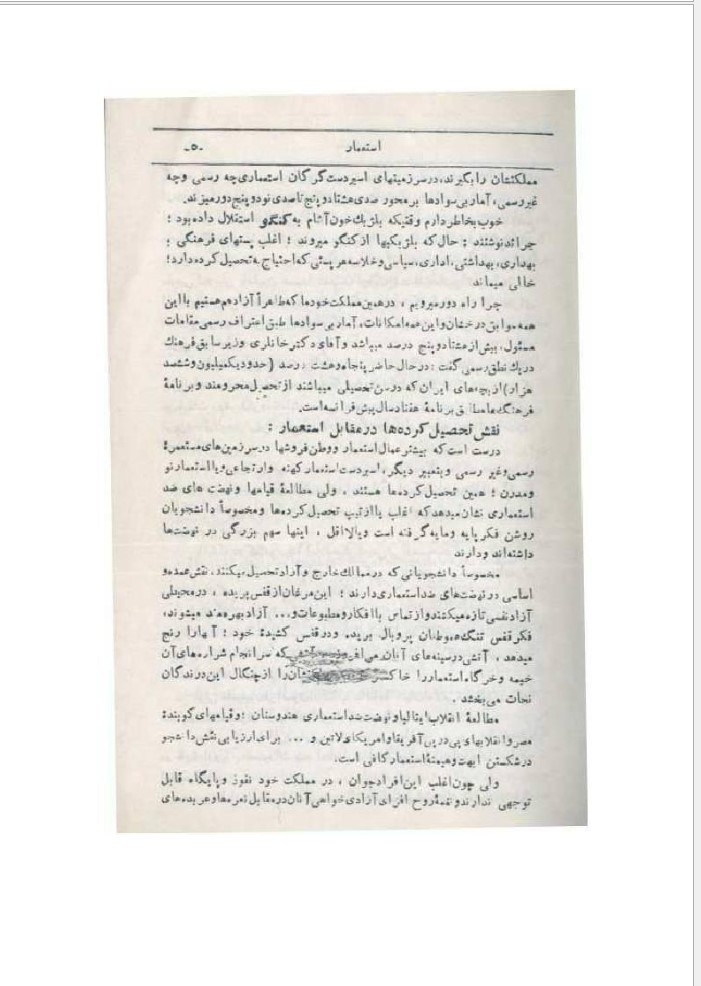 استعمار -۵-
مملکتشان را بگیرند، در سرزمینهای اسیر دست گرگان استعماری چه رسمی وچه
غیر رسمی، آمار بی سوادها بر محور صدی هشتاد و پنج تا صدی نود و پنج دور میزند.
خوب بخاطر دارم وقتیکه بلژیك خون آشام به کنگو استقلال داده بود؛
جرائد نوشتند : حال که بلژیکیها از کنگو میروند ؛ اغلب پستهای فرهنگی ؛
بهداری، بهداشتی، اداری، سیاسی و خلاصه هر پستی که احتیاج به تحصیل کرده دارد؛
خالی میماند
چرا راه دور میرویم ، در همین مملکت خودما که ظاهراً آزاد هم هستیم با این
همه سوابق درخشان و این همه امکانات، آمار بی سوادها طبق اعتراف رسمی مقامات
مسئول، بیش از هشتاد و پنج درصد میباشد و آقای دکتر خانلری وزیر سابق فرهنك
در یك نطق رسمی گفت : در حال حاضر پنجاه و هشت درصد (حدود یکملیون و ششصد
هزار) از بچه‌های ایران که در سن تحصیلی میباشند از تحصیل محرومند و برنامهٔ
فرهنگ ما مطابق برنامهٔ هفتاد سال پیش فرانسه است.
نقش تحصیل کرده‌ها در مقابل استعمار :
درست است که بیشتر عمال استعمار و وطن فروشها در سرزمین‌های مستعمرهٔ
رسمی و غیر رسمی و بتعبیر دیگر، اسیر دست استعمار کهنه وارتجاعی و یا استعمار نو
و مدرن ؛ همین تحصیل کرده‌ها هستند ، ولی مطالعهٔ قیامها و نهضت های ضد
استعماری نشان میدهد که اغلب یا از تیپ تحصیل کرده‌ها و مخصوصاً دانشجویان
روشن فکر پایه و مایه گرفته است و یا لااقل ، اینها سهم بزرگی در نهضت‌ها
داشته‌اند و دارند
مخصوصاً دانشجویانی که در ممالك خارج و آزاد تحصیل میکنند، نقش عمده و
اساسی در نهضت‌های ضد استعماری دارند ؛ این مرغان از قفس پریده ، در محیطی
آزاد نفسی تازه میکنند و از تماس با افکار و مطبوعات و... آزاد بهره‌مند میشوند،
فکر قفس تنگ هموطنان پر و بال بریده و در قفس کشیدهٔ خود ؛ آنها را رنج
میدهد ، آتش در سینه‌های آنان می افروزد آتشی که سرانجام شراره‌های آن
خیمه و خرگاه استعمار را خاکستر را از چنگال این درندگان
نجات می بخشد .
مطالعهٔ انقلاب ایتالیا و نهضت ضد استعماری هندوستان ؛ و قیامهای کوبنده
مصر و انقلابهای پی در پی آفریقا و امریکای لاتین و ... برای ارزیابی نقش دانشجو
در شکستن ابهت و هیمنهٔ استعمار کافی است.
ولی چون اغلب این افراد جوان ، در مملکت خود نفوذ و پایگاه قابل
توجهی ندارند و نغمهٔ روح افزای آزادی خواهی آنان در مقابل نعره‌ها و عربده‌های